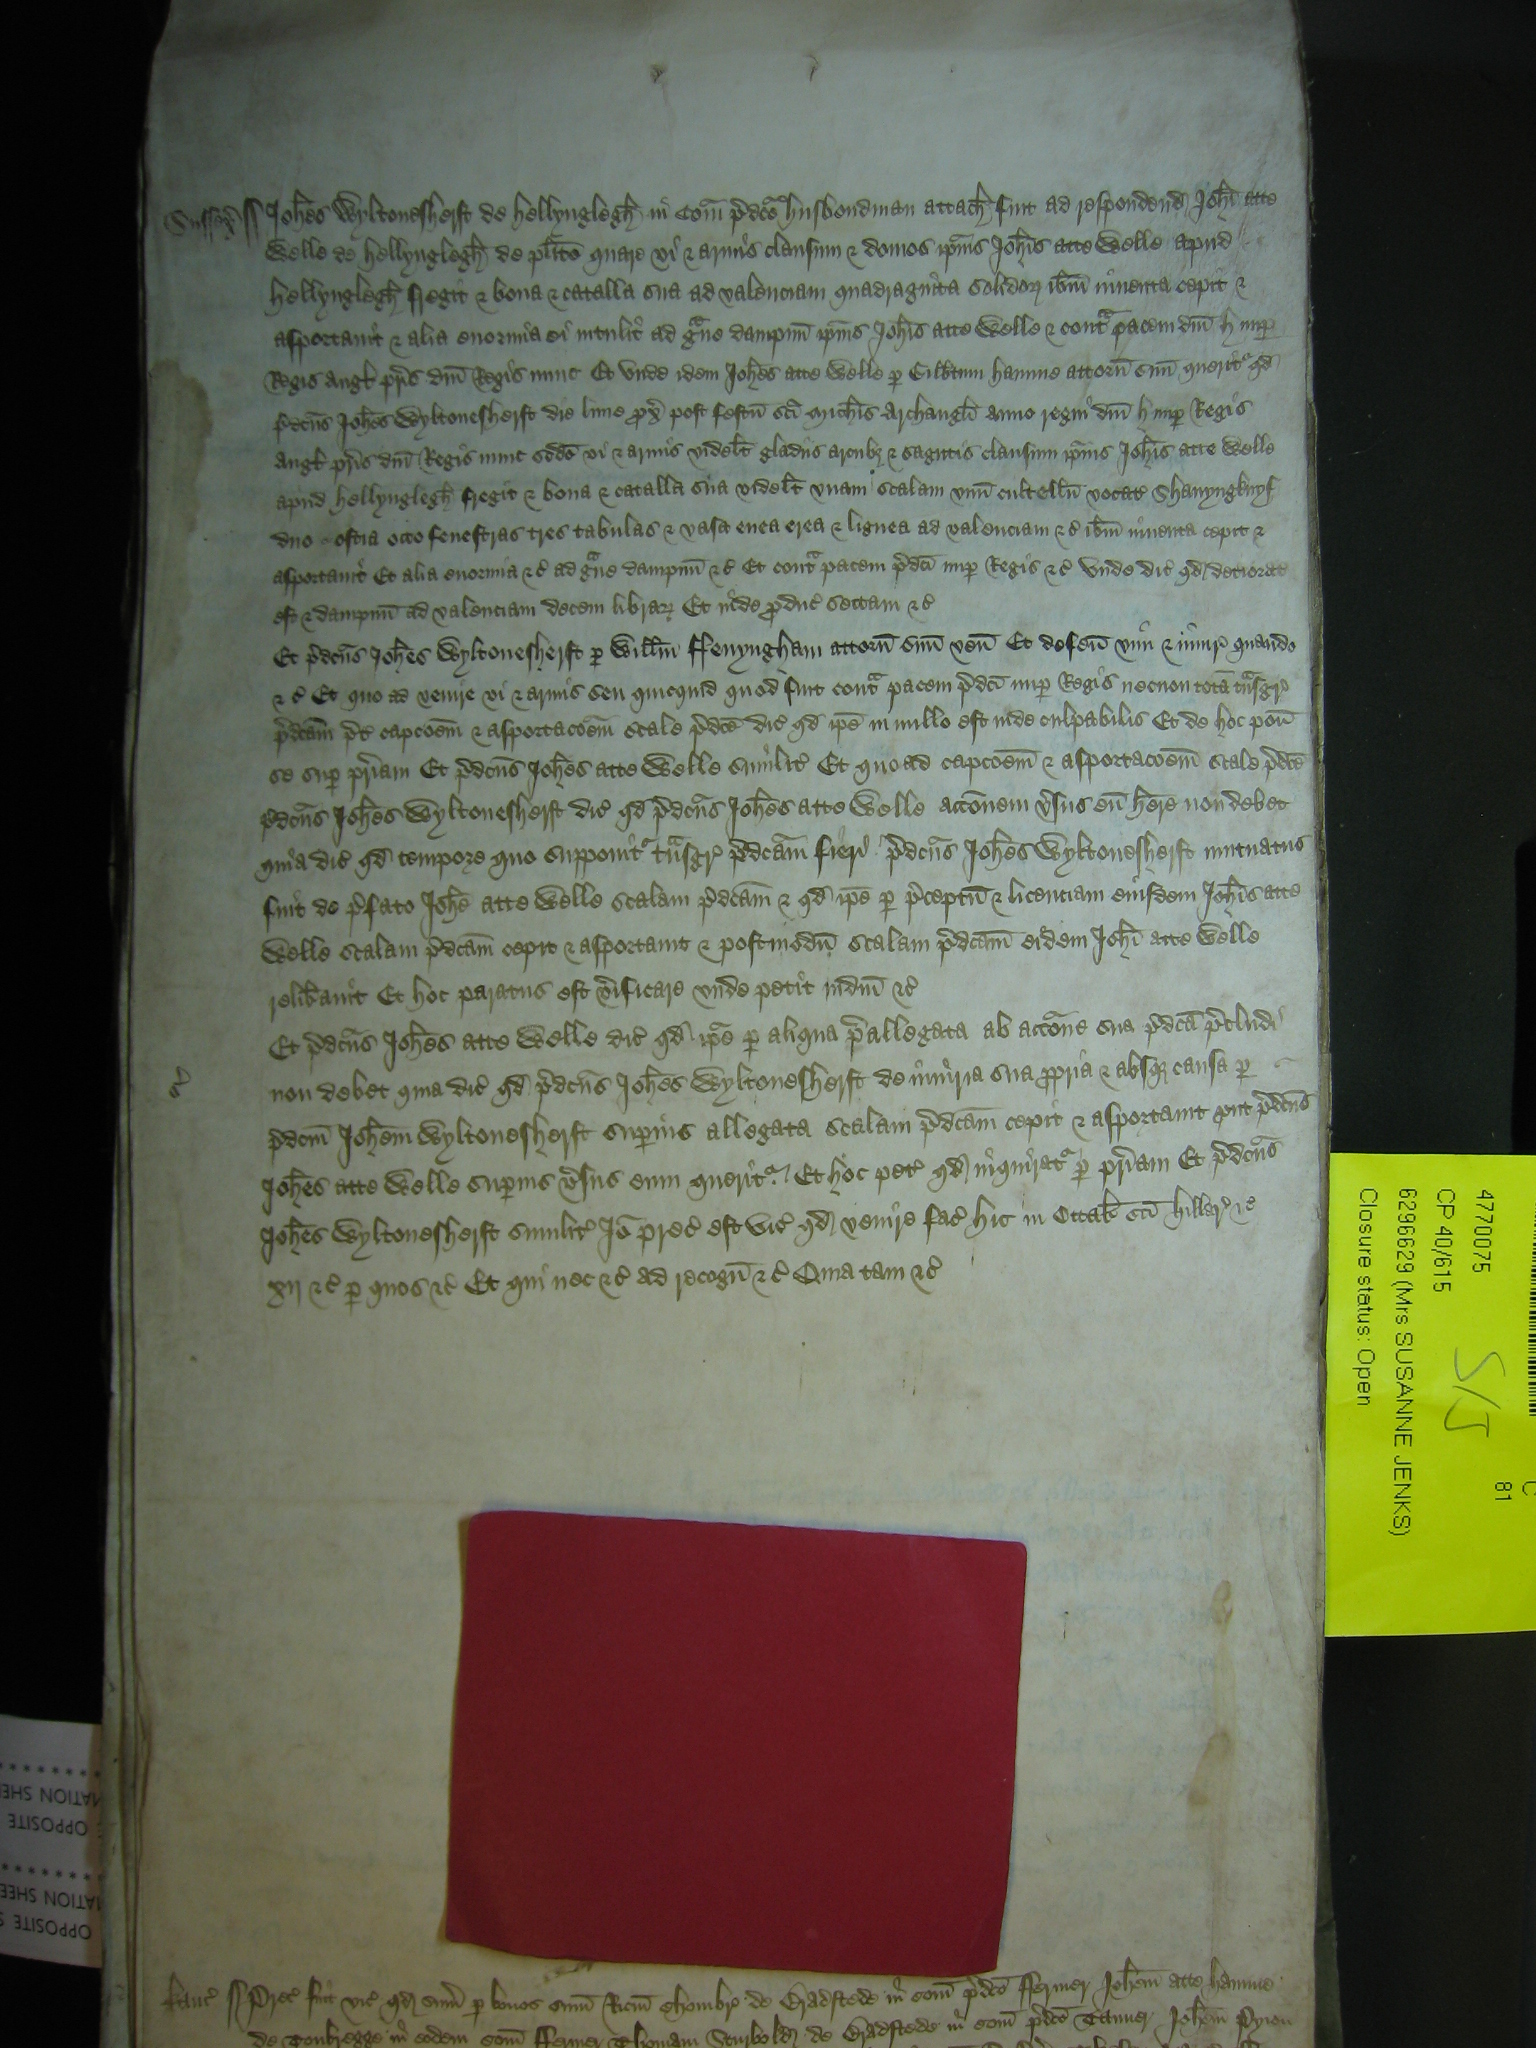 Sussex ss Joh̄es Wyltonesherst de Hellynglegh̄ in Com̄ p̄dc̄o husbondman attach̄ fuit ad respondend̄ Joh̄i atte
Welle de Hellynglegh̄ de pl̄ito quare vi & armis clausum & domos ip̄ius Joh̄is atte Welle apud
Hellynglegh̄ fregit & bona & catalla sua ad valenciam quadraginta solidoꝝ ib̄m inventa cepit &
asportavit & alia enormia ei intulit ad gᵃve dampnū ip̄ius Joh̄is atte Welle & contᵃ pacem dn̄i H nuꝑ
Regis Angl̄ pr̄is dn̄i Regis nunc Et unde idem Joh̄es atte Welle ꝑ Gilb̄tum Hamme attorn̄ suū querit̄ qd̄
p̄dcūs Joh̄es Wyltonesherst die lune ꝓx̄ post festū sc̄i Mich̄is Archangl̄i anno regni dn̄i H nuꝑ Regis
Angl̄ pr̄is dn̄i Regis nunc sc̄do vi & armis videlt̄ gladiis arcubꝫ & sagittis clausum ip̄ius Joh̄is atte Welle
apud Hellynglegh̄ fregit & bona & catalla sua videlt̄ unam scalam unū cultellū vocat̄ Shavyngknyf
duo ostia octo fenestras tres tabulas & vasa enea erea & lignea ad valenciam &c̄ ib̄m inventa cepit &
asportavit Et alia enormia &c̄ ad gᵃve dampnū &c̄ Et contᵃ pacem p̄dc̄i nuꝑ Regis &c̄ Unde dic̄ qd̄ deteriorat̄
est & dampnū ad valenciam decem libraꝝ Et inde ꝓduc̄ sectam &c̄
Et p̄dcūs Joh̄es Wyltonesherst ꝑ Will̄m Ffenyngham attorn̄ suū ven̄ Et defen̄ vim & iniur̄ quando
&c̄ Et quo ad venire vi & armis seu quicquid quod fuit contᵃ pacem p̄dc̄i nuꝑ Regis necnon totā tᵃnsgr̄
p̄dcām p̄t̄ capcōem & asportacōem scale p̄dc̄e dic̄ qd̄ ip̄e in nullo est inde culpabilis Et de hoc pon̄
se suꝑ pr̄iam Et p̄dcūs Joh̄es atte Welle similit̄ Et quo ad capcōem & asportacōem scale p̄dc̄e
p̄dcūs Joh̄es Wyltonesherst dic̄ qd̄ p̄dcūs Joh̄es atte Welle accōnem v̄sus eū h̄ere non debet
quia dic̄ qd̄ tempore quo supponit̄ tᵃnsgr̄ p̄dcām fieri p̄dcūs Joh̄es Wyltonesherst mutuatus
fuit de p̄fato Joh̄e atte Welle scalam p̄dcām & qd̄ ip̄e ꝑ p̄ceptū & licenciam eiusdem Joh̄is atte
Welle scalam p̄dcām cepit & asportavit & postmodū scalam p̄dcām eidem Joh̄i atte Welle
relib̄avit Et hoc paratus est v̄ificare unde petit iudm̄ &c̄
Et p̄dcūs Joh̄es atte Welle dic̄ qd̄ ip̄e ꝑ aliqua p̄allegata ab accōne sua p̄dcā p̄cludi
non debet quia dic̄ qd̄ p̄dcūs Joh̄es Wyltonesherst de iniuria sua ꝓpria & absqꝫ causa ꝑ
p̄dcm̄ Joh̄em Wyltonesherst suꝑius allegata scalam p̄dcām cepit & asportavit ꝓut p̄dcūs
Joh̄es atte Welle suꝑius v̄sus eum querit̄ Et hoc pet̄ qd̄ inquirat̄ ꝑ pr̄iam Et p̄dcūs
Joh̄es Wyltonesherst similit̄ Jō prec̄ est vic̄ qd̄ venire fac̄ hic in Octab̄ sc̄i Hillar̄ &c̄
xij &c̄ ꝑ quos &c̄ Et qui nec &c̄ ad recogn̄ &c̄ Quia tam &c̄
4770075
CP 40/615
6296629 (Mrs SUSANNE JENKS)
Closure status: Open
S/J
81
OPPOSITE
OPPOSITE
Kanc̄ ss Prec̄ fuit vic̄ qd̄ sum̄ ꝑ bonos sum̄ Ricm̄ Chombr̄ de Bradstede in com̄ p̄dc̄o Ffermer Joh̄em atte Hamme
de Tonbregge in eodem com̄ Ffermer Thomam Sturbold̄ de Bradstede in com̄ p̄dc̄o Joh̄em